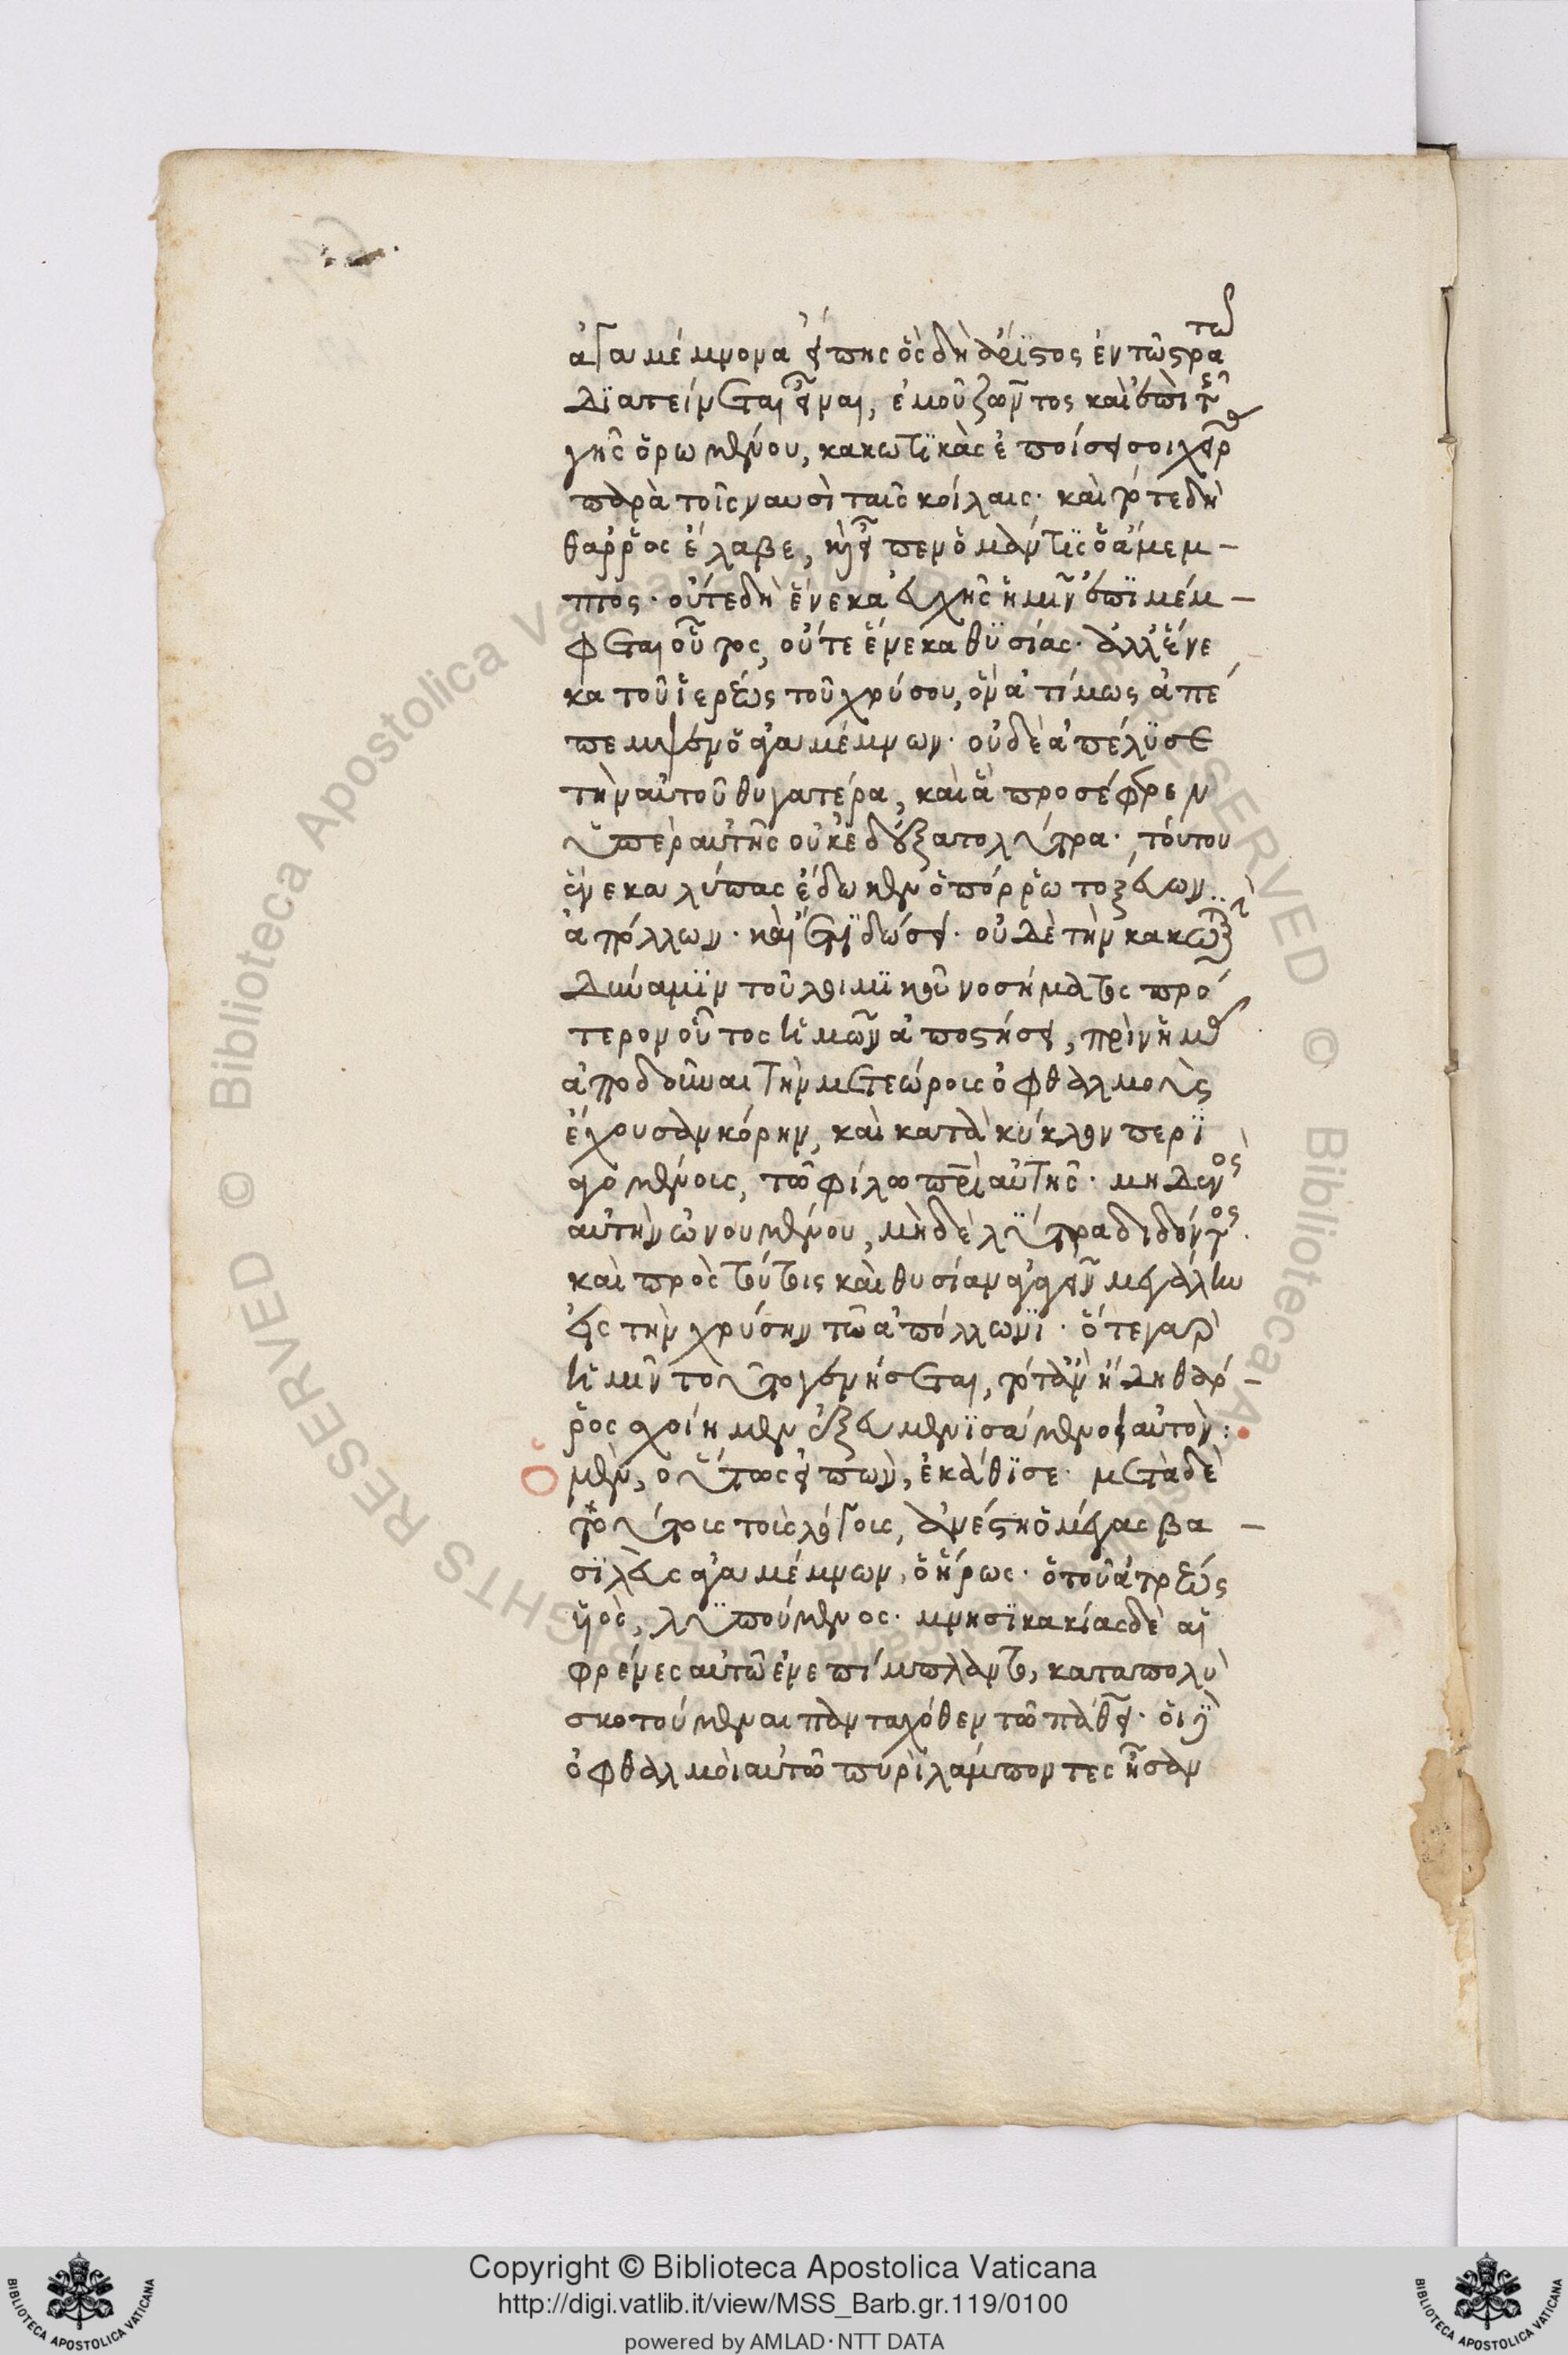 ἀγαμέμνονα εἴπης ὃς δὴ ἄριστος ἐν τῶ στρατῶ
διατείνεται εἶναι, ἐμοῦ ζῶντος καὶ ἐπὶ τῆς
γῆς ὁρωμένου, κακωτικὰς ἐποίσει σοι χεῖρας
παρὰ τοῖς ναυσὶ ταῖς κοίλαις· καὶ τότε δὴ
θάρρος ἔλαβε, καὶ εἶπεν ὁ μάντις ὁ ἄμεμ-
πτος· οὔτε δὴ ἕνεκα εὐχῆς ἡμῖν ἐπιμέμ-
φεται οὗτος, οὔτε ἕνεκα θυσίας· ἀλλ' ἕνε
κα τοῦ ἱερέως τοῦ χρύσου, ὃν ἀτίμως ἀπέ
πεμψεν ὁ ἀγαμέμνων· οὐδὲ ἀπέλυσε
τὴν αὐτοῦ θυγατέρα, καὶ ἃ προσέφερεν
ὑπὲρ αὐτῆς οὐκ ἐδέξατο λύτρα· τούτου
ἕνεκα λύπας ἔδωκεν ὁ πόρρω τοξεύων
ἀπόλλων· καὶ ἔτι δώσει· οὐδὲ τὴν κακωτικὴν
δύναμιν τοῦ λοιμικοῦ νοσήματος πρό
τερον οὗτος ἡμῶν ἀποστήσει, πρὶν ἡμᾶς
ἀποδοῦναι τὴν μετεώροις ὀφθαλμοὺς
ἔχουσαν κόρην, καὶ κατὰ κύκλον περι
αγομένοις, τῶ φίλω πατρὶ αὐτῆς· μηδενὸς
αὐτὴν ὠνουμένου, μηδὲ λύτρα διδόντος·
καὶ πρὸς τούτοις καὶ θυσίαν ἀγαγεῖν μεγάλην
εἰς τὴν χρύσην τῶ ἀπόλλωνι· ὅτε γὰρ
ἡμῖν τοῦτο γενήσεται, τότ' ἂν ἤδη θάρ-
ρος σχοίημεν ἐξευμενισάμενοι αὐτὸν:
Ὁ μὲν, οὕτως εἰπὼν, ἐκάθισε· μετὰ δὲ
τούτοις τοῖς λόγοις, ἀνέστη ὁ μέγας βα-
σιλεὺς ἀγαμέμνων, ὁ ἥρως· ὁ τοῦ ἀτρέως
υἱὸς, λυπούμενος· μνησικακίας δὲ αἱ
φρένες αὐτῶ ἐνεπίμπλαντο, κατὰ πολὺ
σκοτούμεναι πανταχόθεν τῶ πάθει· οἱ δὲ
ὀφθαλμοὶ αὐτῶ πυρὶ λάμποντες ἦσαν
Copyright © Biblioteca Apostolica Vaticana
http://digi.vatlib.it/view/MSS_Barb.gr.119/0100
powered by AMLAD·NTT DATA